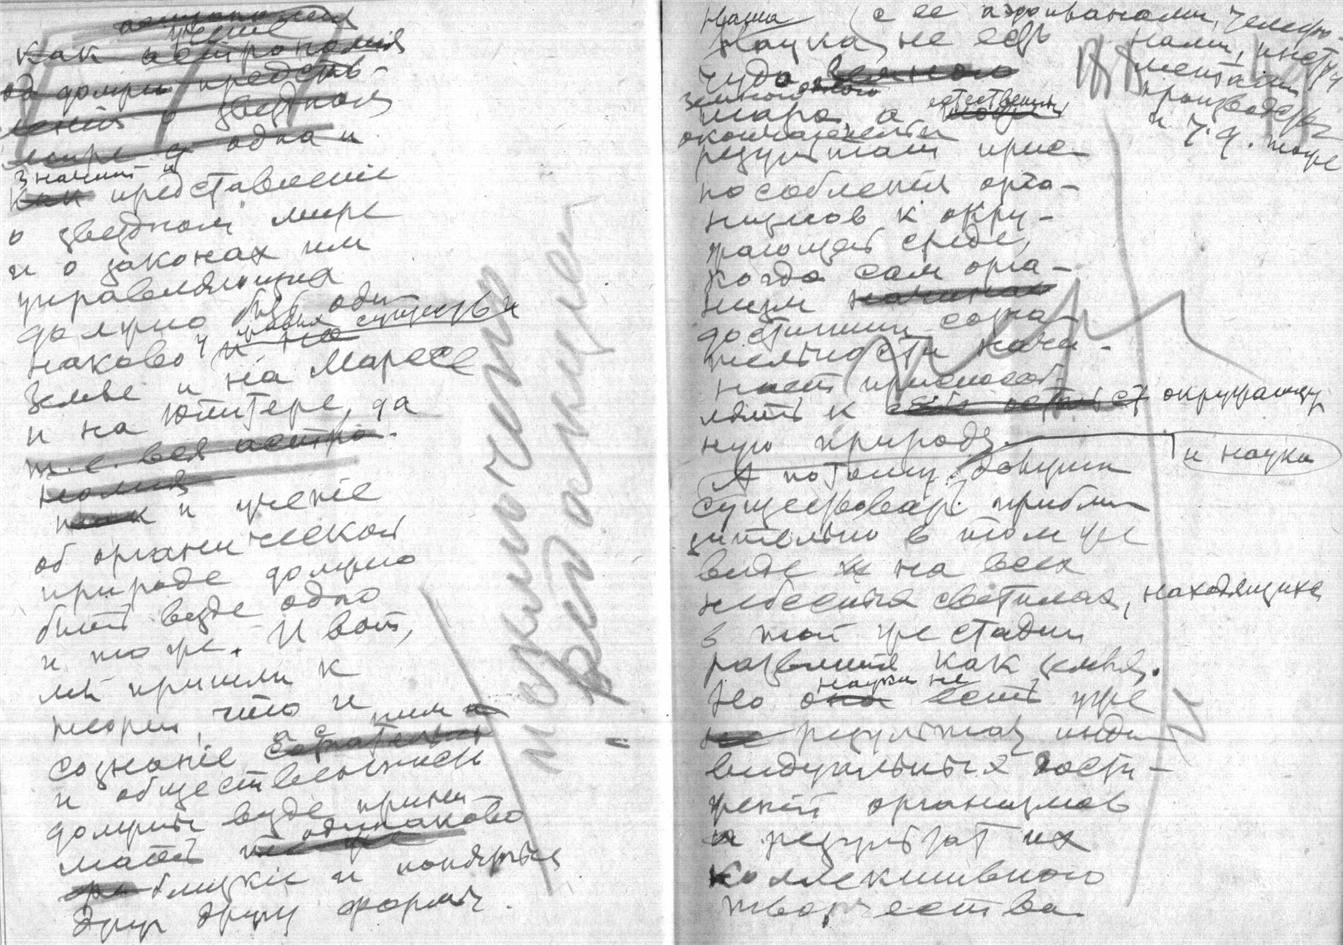 учение
как астрономия
должны представ-
лений о звездном
мире одна и
значит и
как представление
о звездном мире
и о законах им
управляющих
должно быть оди
наково у существ и
Земле и на Марсе
и на Юпитере, да
т.е. вся астро-
номия
и учение
об органической
природе должно
быть везде одно
и то же. И вот,
мы пришли к
теории, что и
сознание, а с ним
и общественность
должны везде прини-
мать одинаково
близкие и понятные
друг другу формы.
исключено
редакцией
Наша (с ее аэропланами,
наука не есть
чудо земного
шара, а естественный
окончательный
результат прис-
пособления орга-
низмов к окру-
жающей среде,
когда сам орга-
низм
достигший созна-
тельности начи-
нает приспособ
лять к себе окружающу
ную природу.
и наука
А потому должны
существовать прибли
зительно в том же
виде и на всех
небесных светилах, находящихся
в той же стадии
развития как земля.
Но науки не есть уже
результат инди
видуальных дости-
жений организмов
а результат их
коллективного
творчества